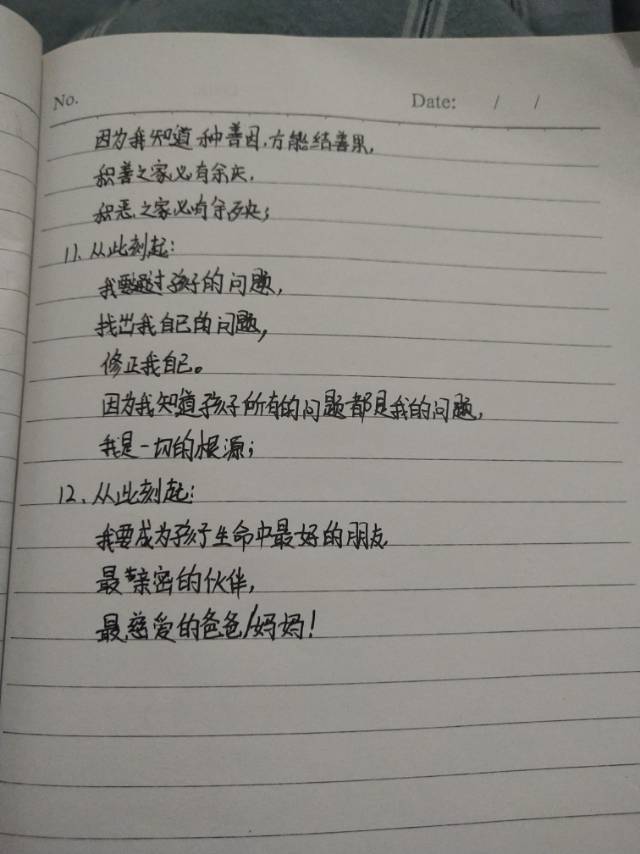 No.
Date: / /
因为我知道种善因,方能结善果,
积善之家必有余庆,
积恶之家必有余殃;
11、从此刻起:
我要通过孩子的问题,
找出我自己的问题,
修正我自己。
因为我知道孩子所有的问题都是我的问题,
我是一切的根源;
12、从此刻起:
我要成为孩子生命中最好的朋友
最亲密的伙伴,
最慈爱的爸爸/妈妈!